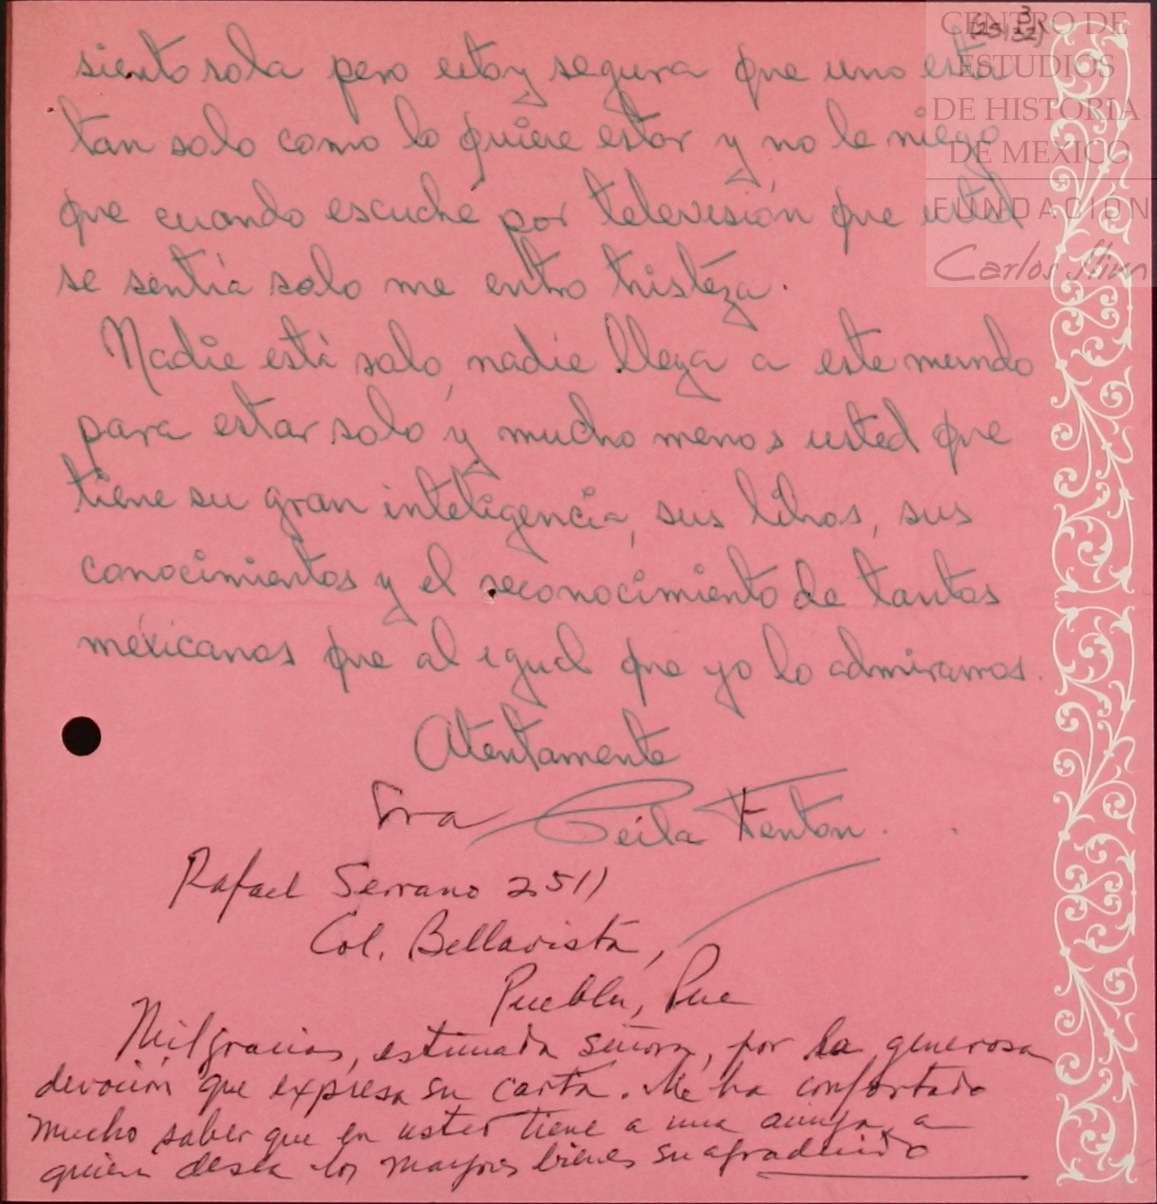 3
(25132)
CENTRO DE
ESTUDIOS
DE HISTORIA
DE MEXICO
FUNDACIÓN
Carlos Slim
siento sola pero estoy segura que uno está
tan solo como lo quiere estar y no le niego
que cuando escuché por televisión que usted
se sentía solo me entro tristéza.
Nadie está solo, nadie llega a este mundo
para estar solo y mucho menos usted que
tiene su gran inteligencia, sus libros, sus
conocimientos y el reconocimiento de tantos
méxicanos que al igual que yo lo admiramos.
Atentamente
Sra Ceila Fenton.
Rafael Serrano 2511
Col. Bellavista,
Puebla, Pue
Mil gracias, estimada señora, por la generosa
devoción que expresa su carta. Me ha confortado
mucho saber que en usted tiene a una amiga, a
quien desea los mayores bienes su agradecido